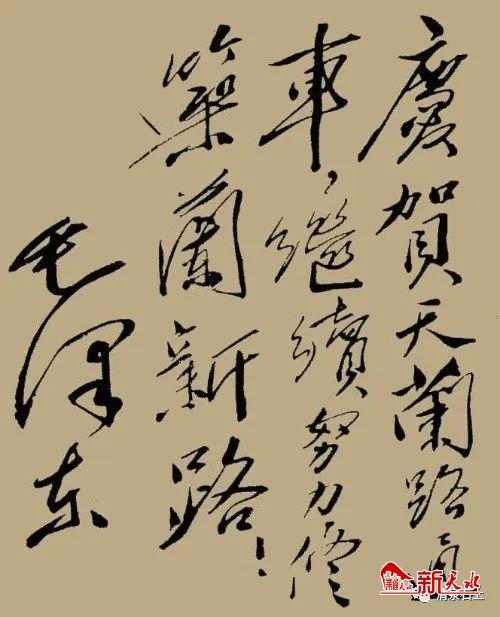 慶賀天蘭路通
車,繼續努力修
築蘭新路!
毛澤东
新天水